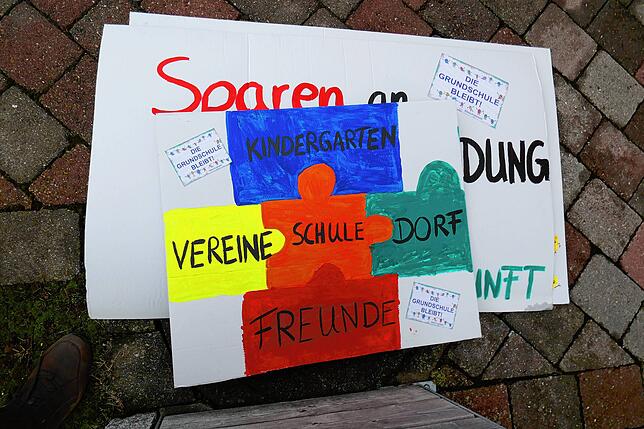 Sparen an
DUNG
NFT
DIE
GRUNDSCHULE
BLEIBT!
DIE
GRUNDSCHULE
BLEIBT!
KINDERGARTEN
VEREINE
SCHULE
DORF
FREUNDE
DIE
GRUNDSCHULE
BLEIBT!